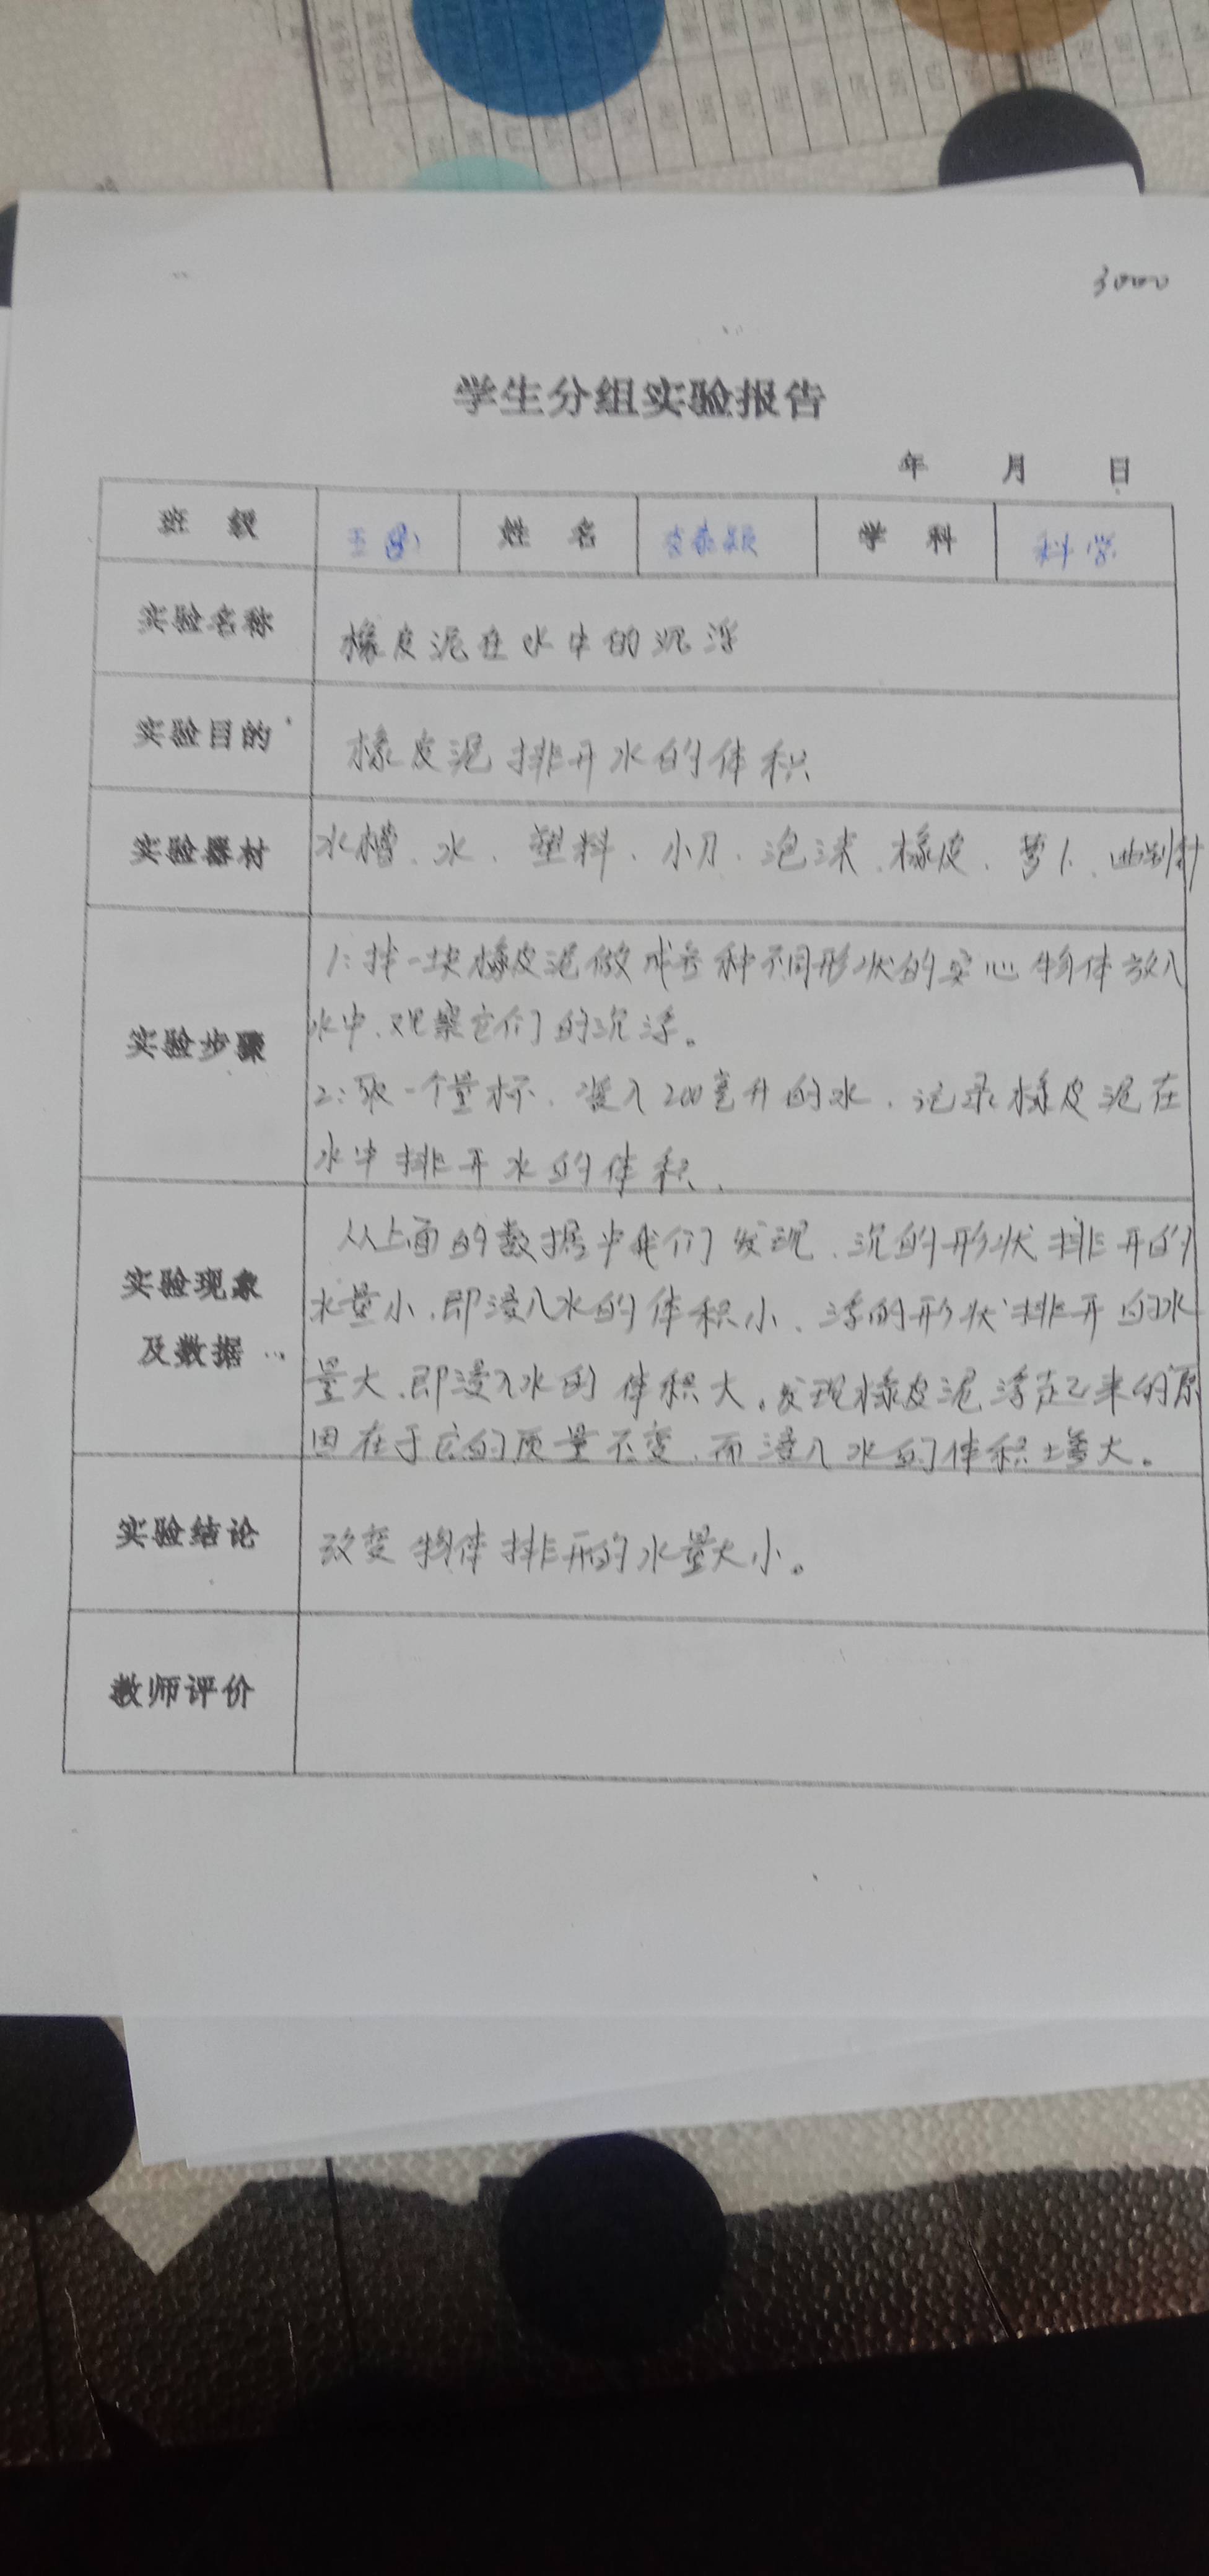 3000
学生分组实验报告
年 月 日
班 级 姓 名 学 科 科学
实验名称 橡皮泥在水中的沉浮
实验目的 橡皮泥排开水的体积
实验器材 水槽、水、塑料、小刀、泡沫、橡皮、萝卜、曲别针
实验步骤
1:找一块橡皮泥做成各种不同形状的实心物体放入
水中、观察它们的沉浮。
2:取一个量杯、装入200毫升的水、记录橡皮泥在
水中排开水的体积、
实验现象
及数据
从上面的数据中我们发现、沉的形状排开的
水量小、即浸入水的体积小、浮的形状排开的水
量大、即浸入水的体积大。发现橡皮泥浮起来的原
因在于它的质量不变、而浸入水的体积增大。
实验结论 改变物体排开的水量大小。
教师评价